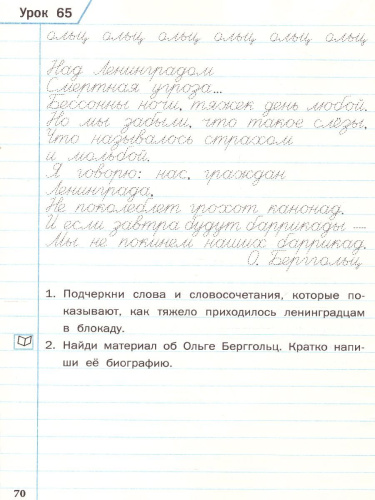 Урок 65
ольц ольц ольц ольц ольц ольц
Над Ленинградом
Смертная угроза...
Бессонны ночи, тяжек день любой.
Но мы забыли, что такое слёзы,
Что называлось страхом
и мольбой.
Я говорю: нас, граждан
Ленинграда,
Не поколеблет грохот канонад,
И если завтра будут баррикады —
Мы не покинем наших баррикад.
О. Берггольц
1. Подчеркни слова и словосочетания, которые по-
казывают, как тяжело приходилось ленинградцам
в блокаду.
2. Найди материал об Ольге Берггольц. Кратко напи-
ши её биографию.
70